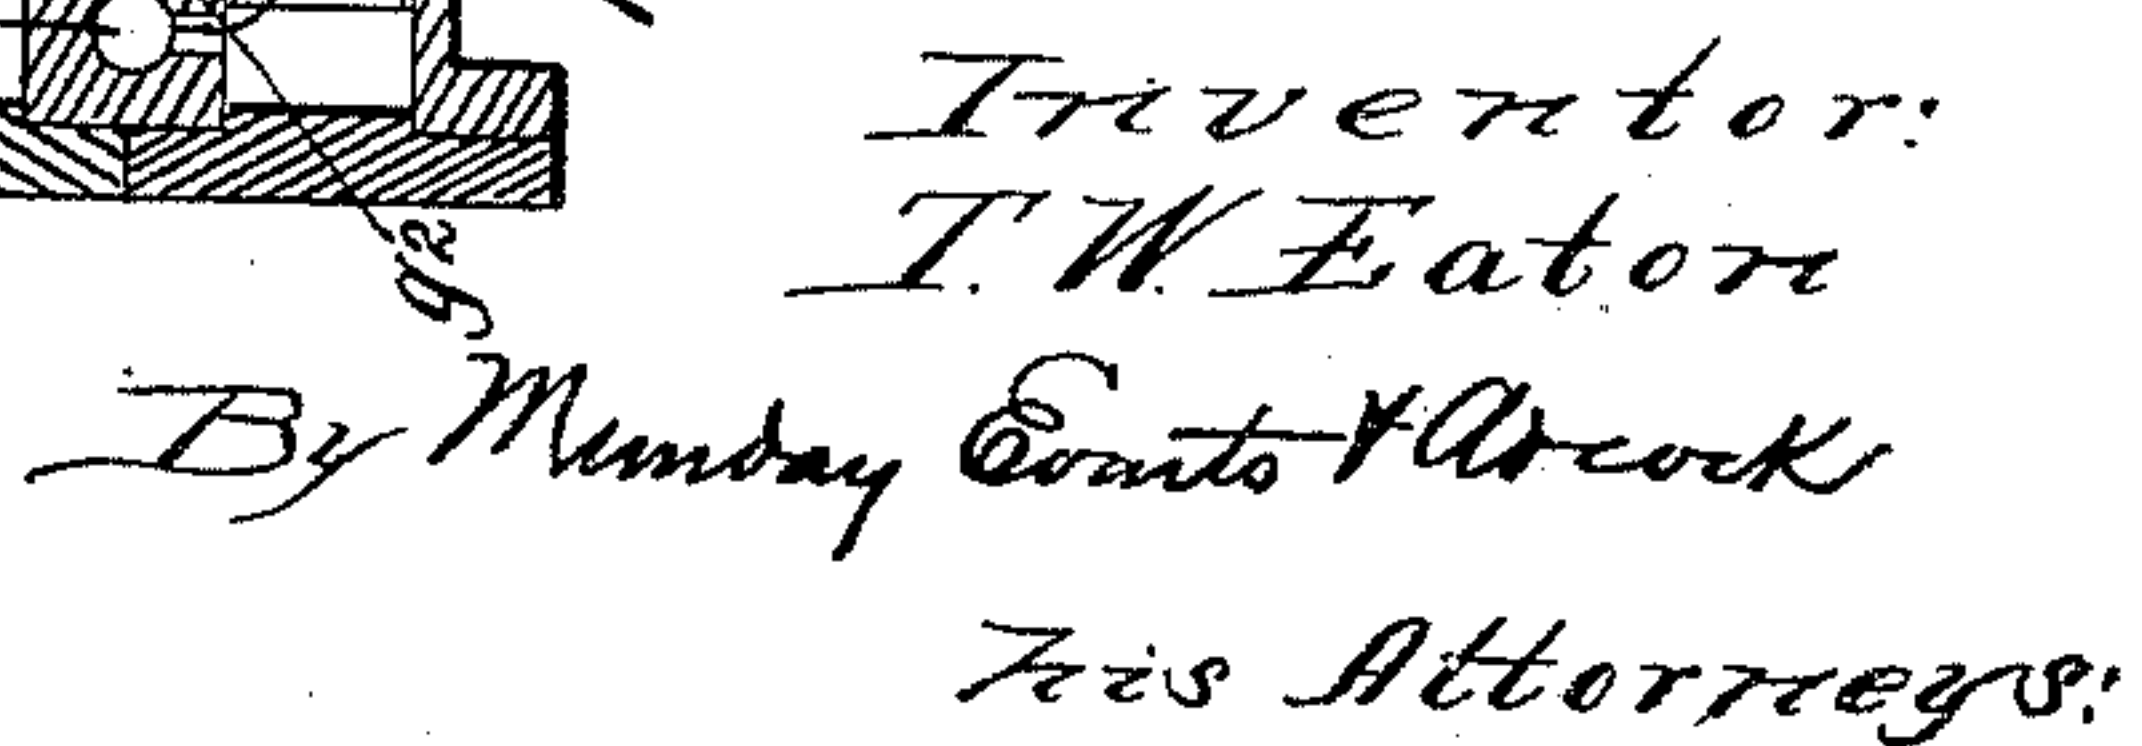 g2
Inventor:
T. W. Eaton
By Munday Evarts & Adcock
his Attorneys: